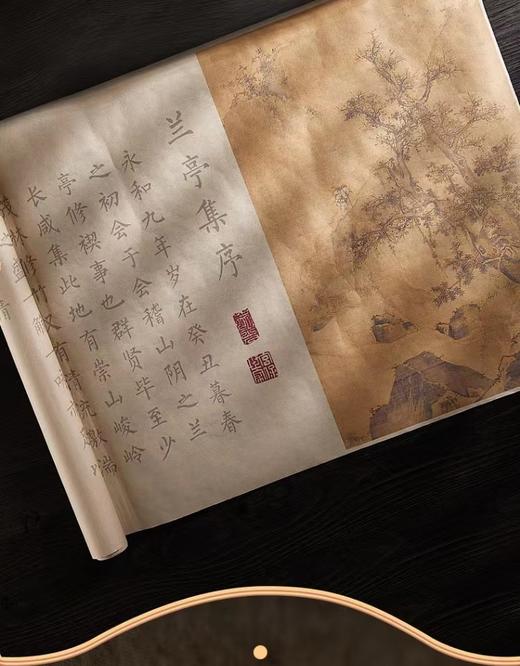 兰亭集序
永和九年岁在癸丑暮春
之初会于会稽山阴之兰
亭修禊事也群贤毕至少
长咸集此地有崇山峻岭
林修竹有